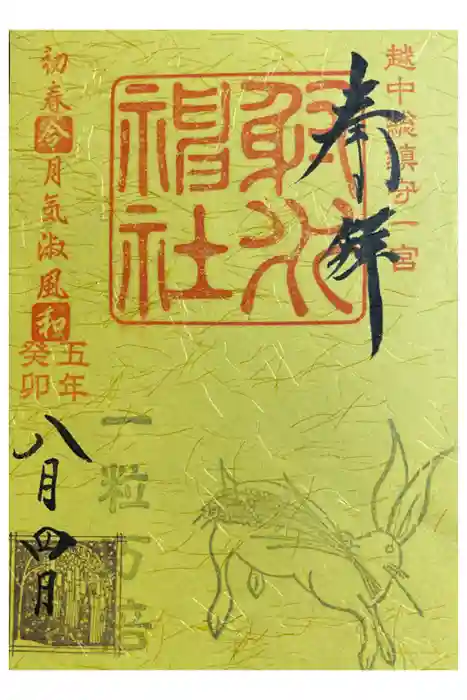 越中総鎮守一宮
奉拝
射水
神社
初春令月気淑風和
五年
癸卯
八月四日
一粒万倍